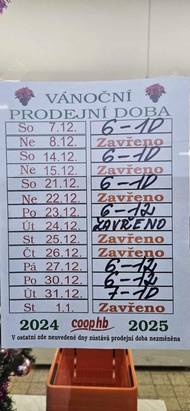 VÁNOČNÍ
PRODEJNÍ DOBA
So 7.12. 6-10
Ne 8.12. Zavřeno
So 14.12. 6-10
Ne 15.12. Zavřeno
So 21.12. 6-10
Ne 22.12. Zavřeno
Po 23.12. 6-12
Út 24.12. ZAVŘENO
St 25.12. Zavřeno
Čt 26.12. Zavřeno
Pá 27.12. 6-12
Po 30.12. 6-12
Út 31.12. 7-10
St 1.1. Zavřeno
2024 coop hb 2025
V ostatní zde neuvedené dny zůstává prodejní doba nezměněna